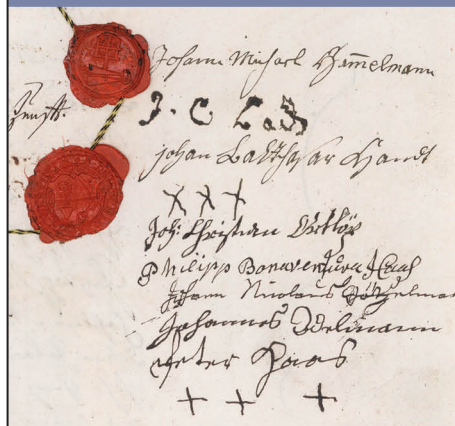 Johann Michael Hammelmann
Zunfft.
J. C L
Johan Balthasar Handt
x x x
Joh: Christian
Philipp Bonaventura Haas
Johann Nicolaus
Johannes Edelmann
Peter Haas
+ + +